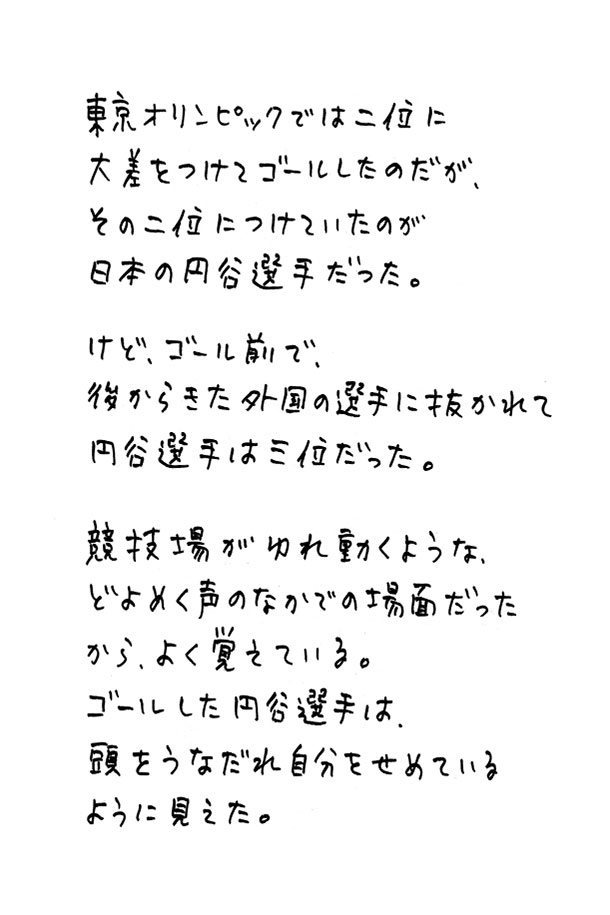 東京オリンピックでは二位に
大差をつけてゴールしたのだが、
その二位につけていたのが
日本の円谷選手だった。
けど、ゴール前で、
後からきた外国の選手に抜かれて
円谷選手は三位だった。
競技場がゆれ動くような、
どよめく声のなかでの場面だった
から、よく覚えている。
ゴールした円谷選手は、
頭をうなだれ自分をせめている
ように見えた。